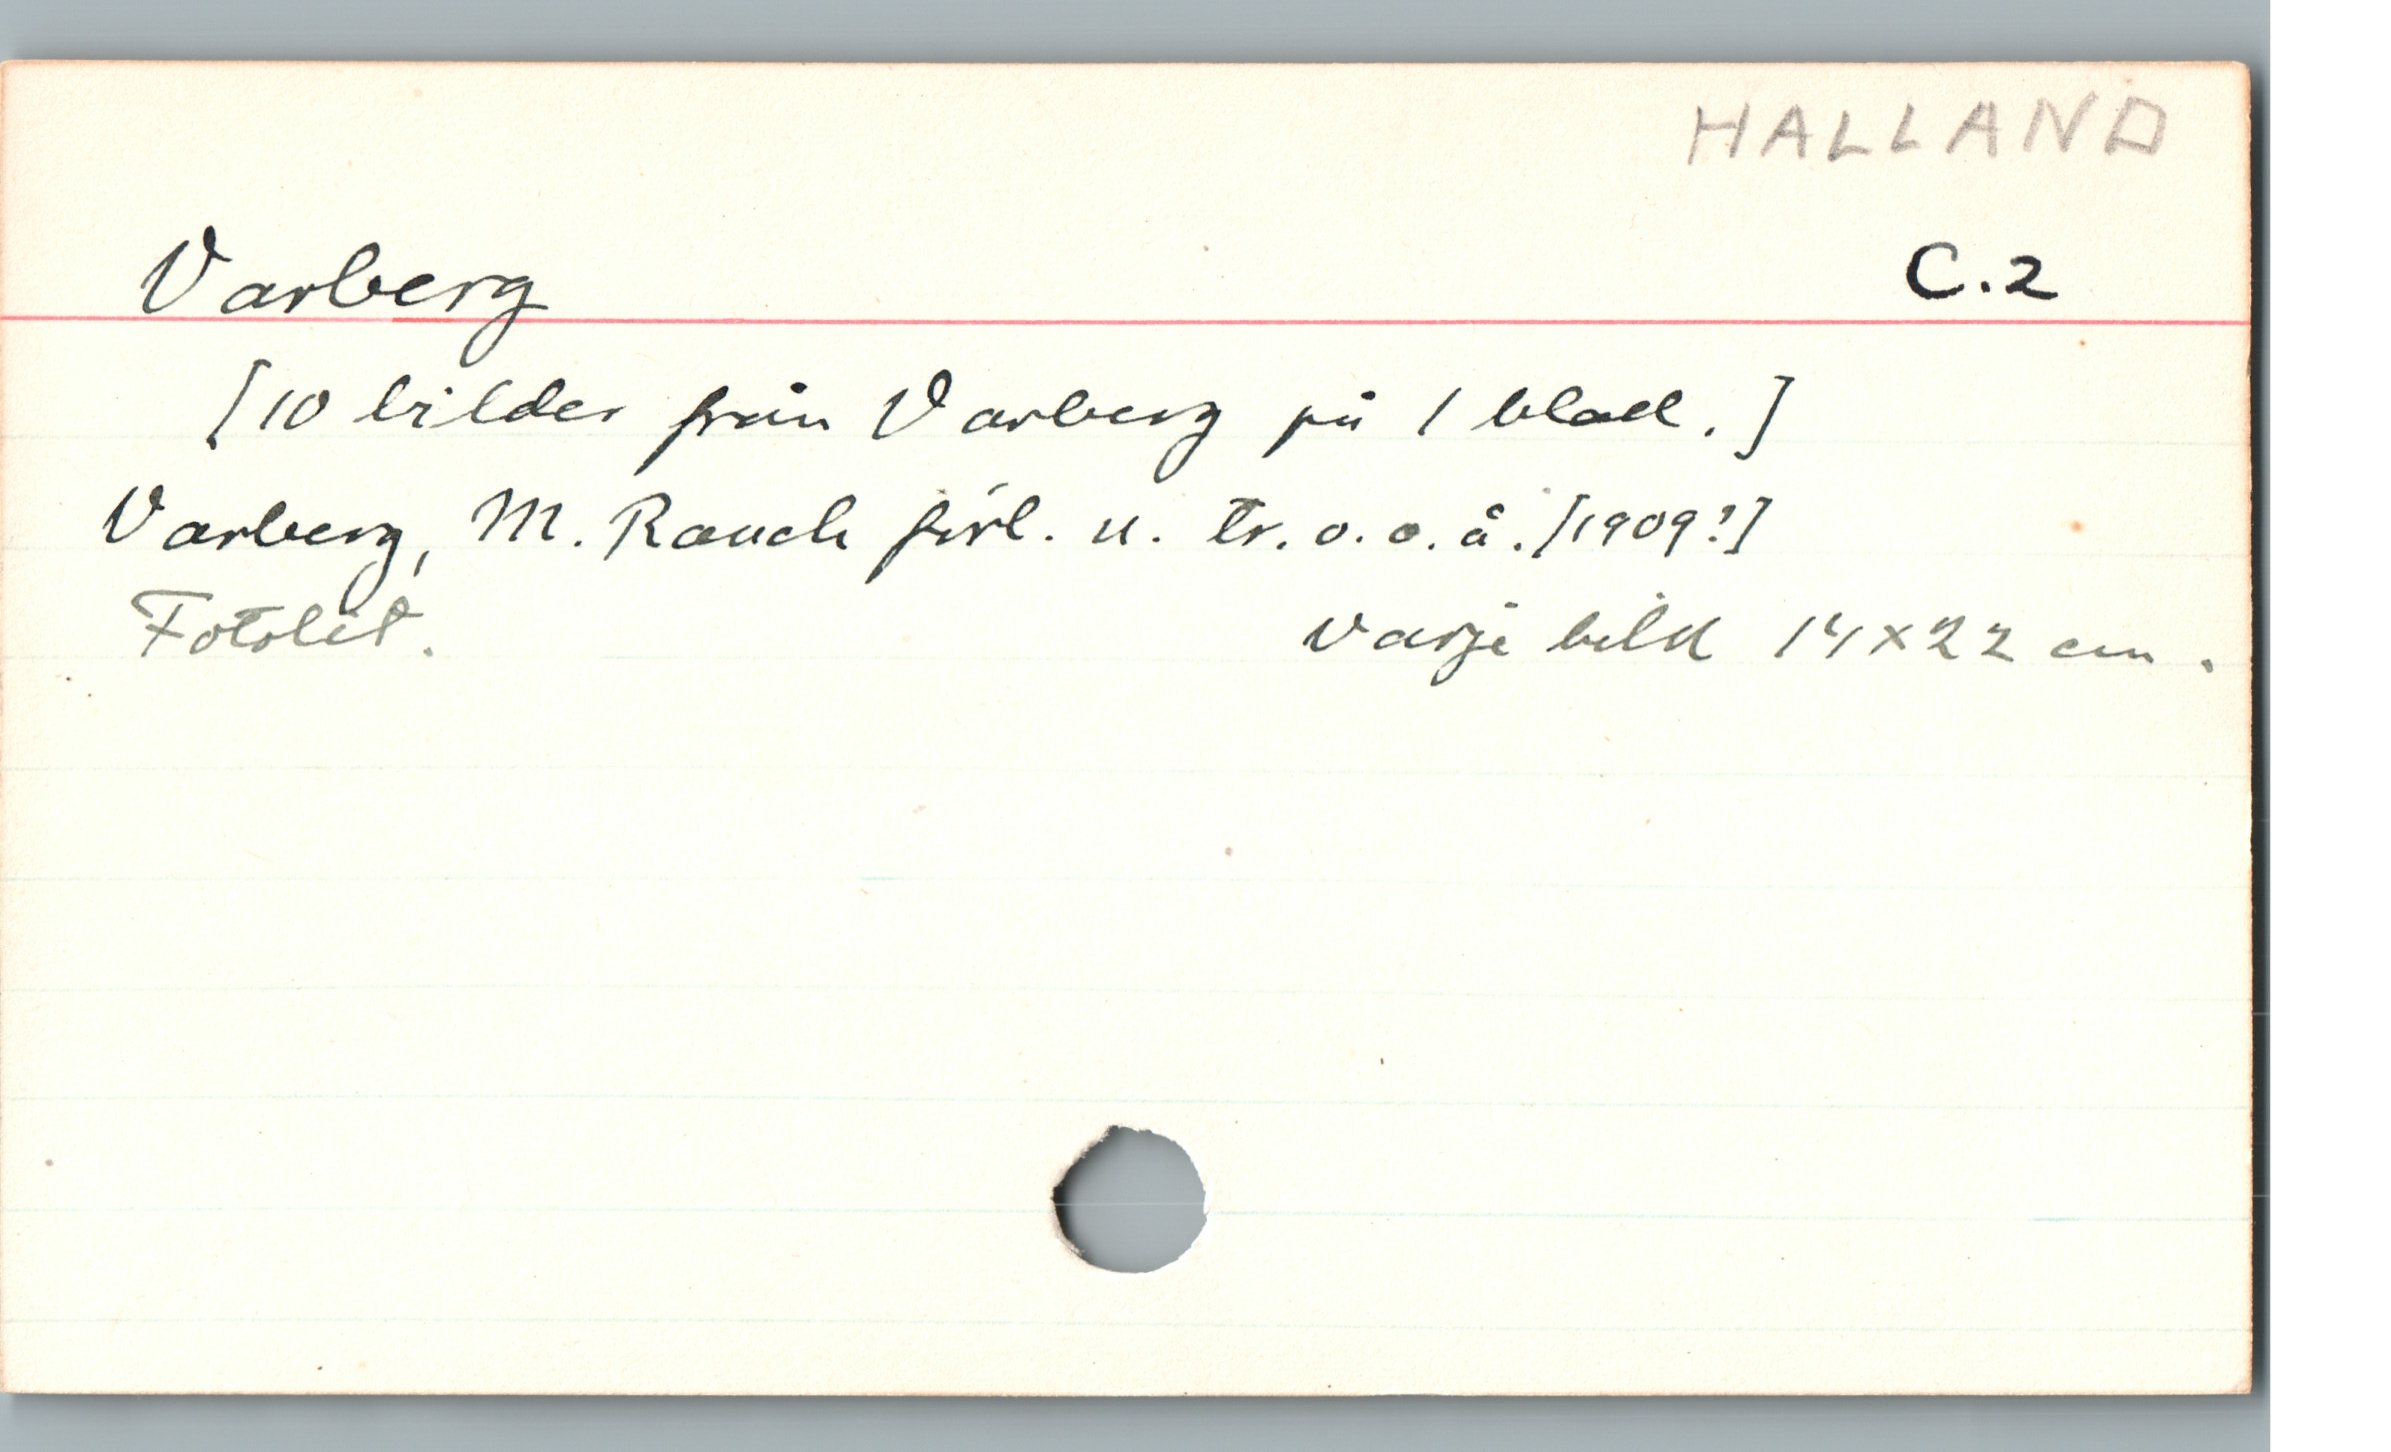 HALLAND
Varberg C.2
[10 bilder från Varberg på 1 blad.]
Varberg, M. Rauch förl. u. tr. o. o. å. [1909?]
Fotolit. Varje bild 14x22 cm.